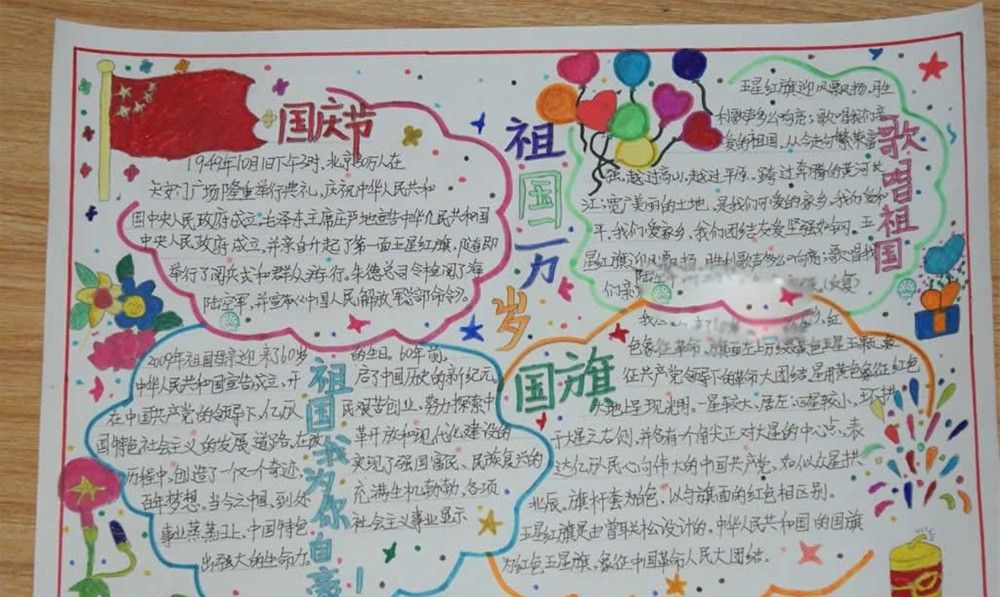 国庆节
1949年10月1日下午3时,北京30万人在
天安门广场隆重举行典礼,庆祝中华人民共和
国中央人民政府成立,毛泽东主席庄严地宣告中华人民共和国
中央人民政府成立,并亲自升起了第一面五星红旗,随即
举行了阅兵式和群众游行。朱德总司令检阅了海
陆空军,并宣布《中国人民解放军总部命令》。
祖国一万岁
歌唱祖国
五星红旗迎风飘扬,胜
利歌声多么响亮;歌唱我们亲
爱的祖国,从今走向繁荣富
强。越过高山,越过平原,跨过奔腾的黄河长
江;宽广美丽的土地,是我们可爱的家乡,我们爱和
平,我们爱家乡,我们团结友爱坚强如钢。五
星红旗迎风飘扬,胜利歌声多么响亮;歌唱我
们亲
(反复)
祖国我为你自豪!
2009年祖国母亲迎来了60岁的生日。60年前,
中华人民共和国宣告成立,开启了中国历史的新纪元,
在中国共产党的领导下,亿万人民艰苦创业,努力探索中
国特色社会主义的发展道路,在改革开放和现代化建设的
历程中,创造了一个又一个奇迹,实现了强国富民、民族复兴的
百年梦想。当今中国,到处充满生机勃勃,各项
事业蒸蒸日上,中国特色社会主义事业显示
出强大的生命力。
国旗
红
色象征革命,旗面左上方缀黄色五星五颗,象
征共产党领导下的革命大团结,星用黄色象征红色
大地上呈现光明。一星较大,居左,四星较小,环拱
于大星之右侧,并各有一个角尖正对大星的中心点,表
达亿万人民心向伟大的中国共产党,如似众星拱
北辰。旗杆套为白色,以与旗面的红色相区别。
五星红旗是由曾联松设计的。中华人民共和国的国旗
为红色五星旗,象征中国革命人民大团结。